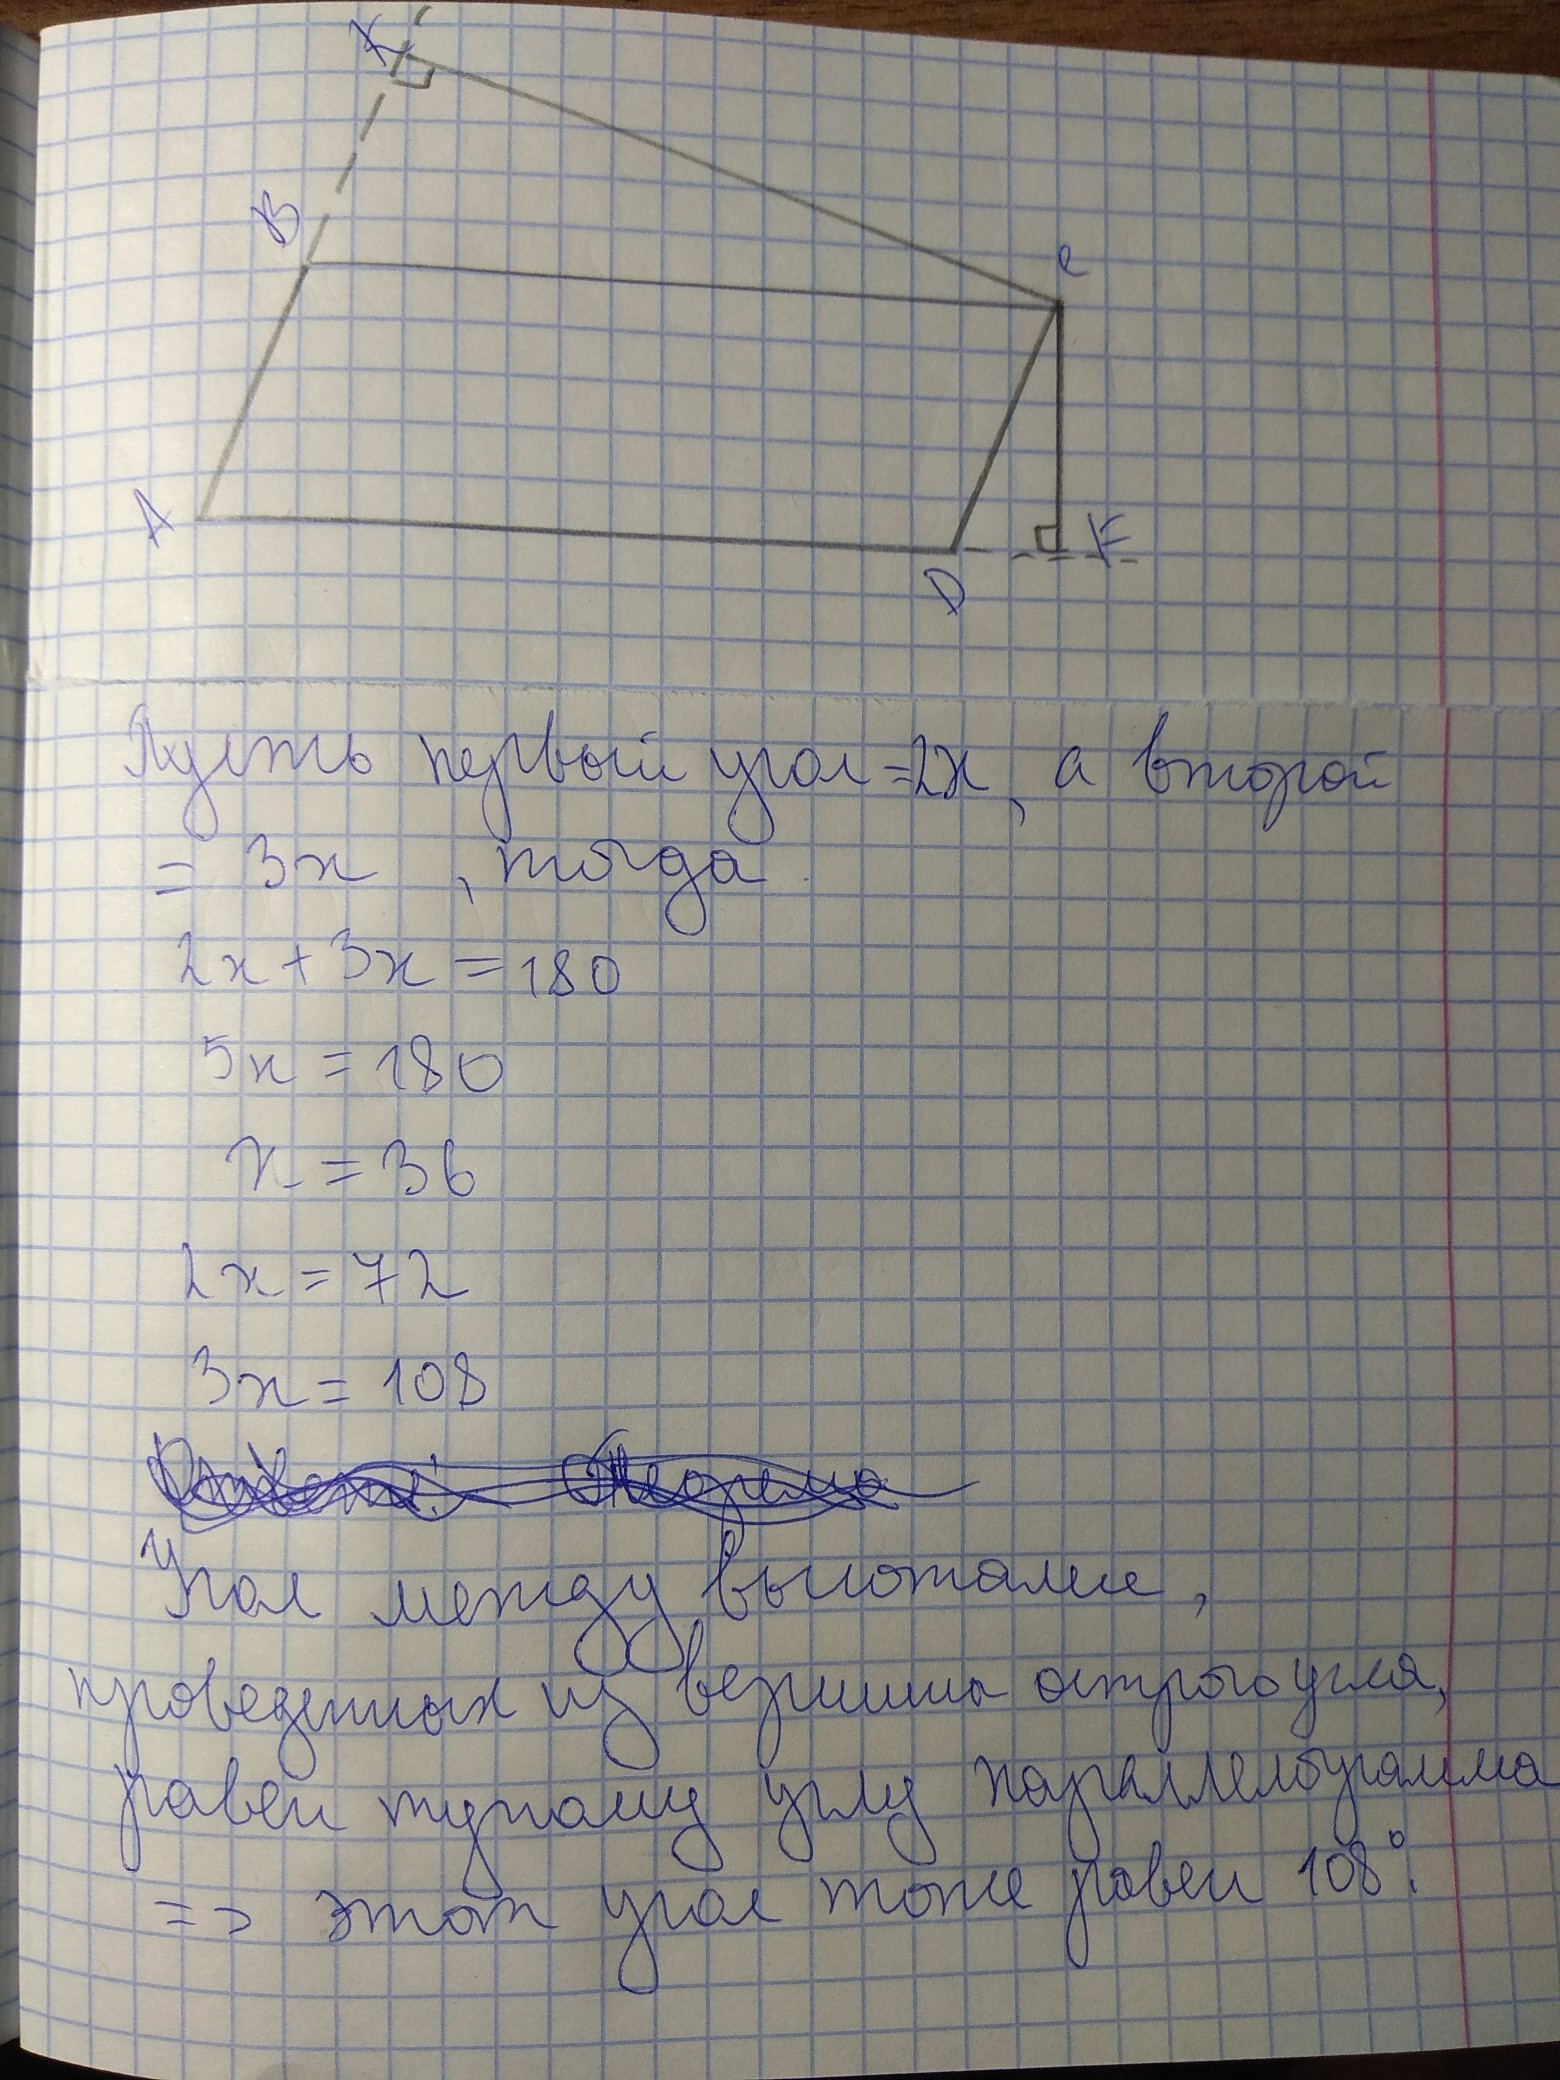 К
В
С
А
D
F
Пусть первый угол = 2х, а второй
= 3х, тогда
2х + 3х = 180
5х = 180
х = 36
2х = 72
3х = 108
Ответ: Теорема
Угол между высотами,
проведенных из вершины острого угла,
равен тупому углу параллелограмма
=> этот угол тоже равен 108°.